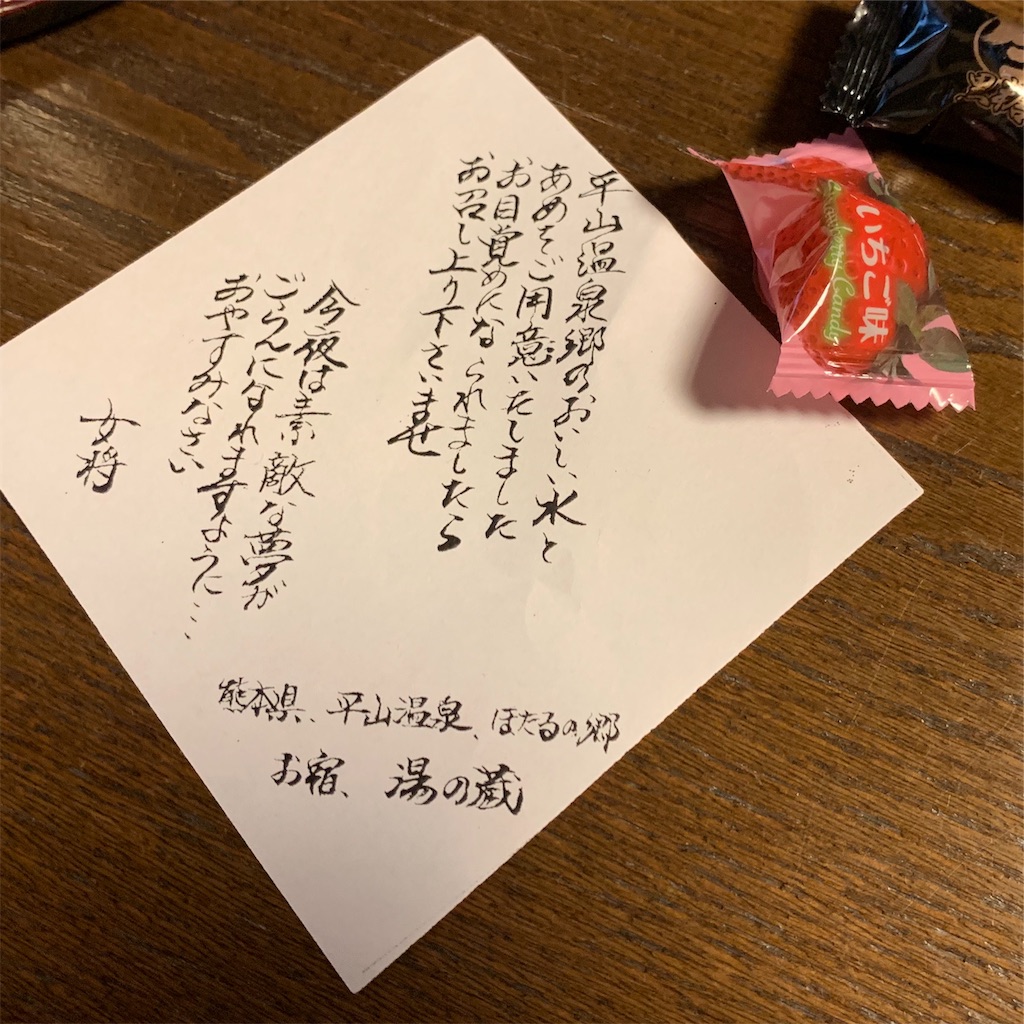 平山温泉郷のおいしい水と
あめをご用意いたしました
お目覚めになられましたら
お召し上り下さいませ
今夜は素敵な夢が
ごらんになれますように…
おやすみなさい
女将
熊本県、平山温泉、ほたるの郷
お宿、湯の蔵
いちご味
Strawberry Candy
黒糖